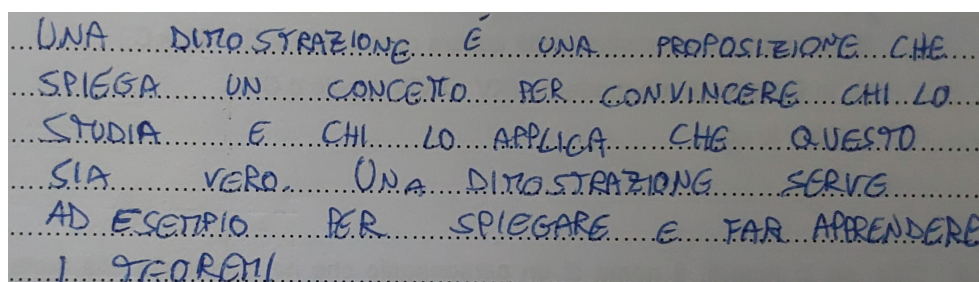 UNA DIMOSTRAZIONE É UNA PROPOSIZIONE CHE
SPIEGA UN CONCETTO PER CONVINCERE CHI LO
STUDIA E CHI LO APPLICA CHE QUESTO
SIA VERO. UNA DIMOSTRAZIONE SERVE
AD ESEMPIO PER SPIEGARE E FAR APPRENDERE
I TEOREMI